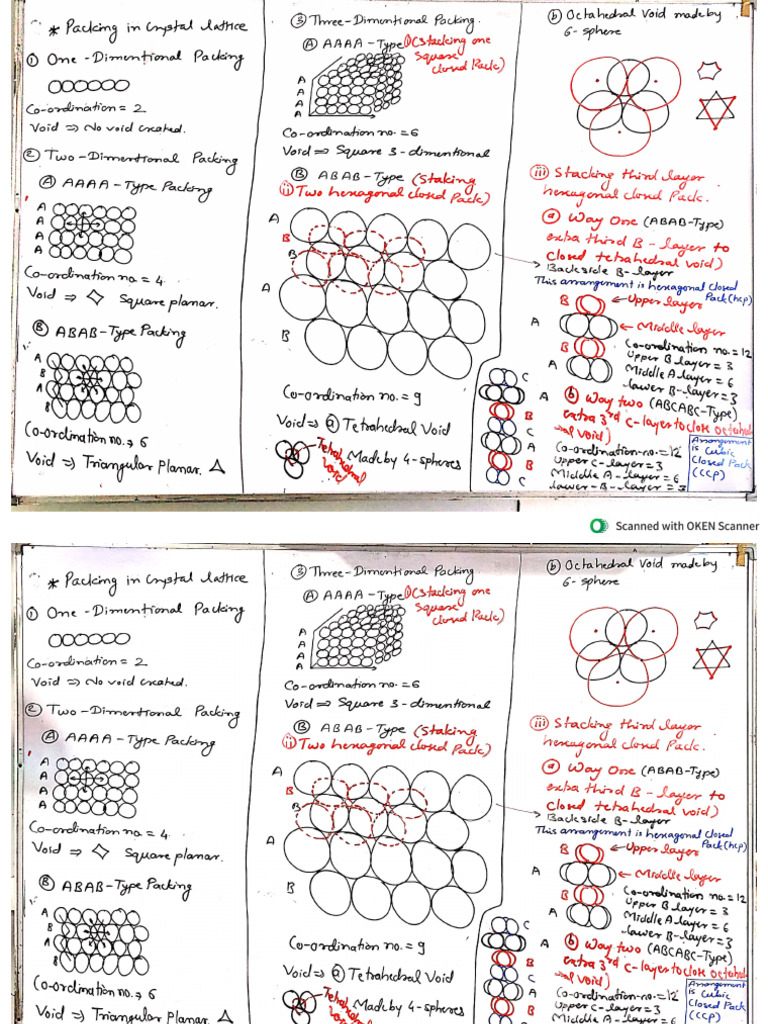 * Packing in Crystal lattice
① One-Dimentional Packing
Co-ordination = 2
Void ⇒ No void created.
② Two-Dimentional Packing
Ⓐ AAAA-Type Packing
A
A
A
A
Co-ordination no = 4
Void ⇒ Square planar.
Ⓑ ABAB-Type Packing
A
B
A
B
Co-ordination no. → 6
Void ⇒ Triangular Planar.
③ Three-Dimentional Packing.
Ⓐ AAAA-Type (i) (Stacking one
Square
Closed Pack)
A
A
A
A
Co-ordination no. = 6
Void ⇒ Square 3-dimentional
Ⓑ ABAB-Type (Staking
(ii) Two hexagonal closed Pack)
A
B
B
A
B
Co-ordination no. = 9
Void ⇒ ⓐ Tetrahedral Void
Tetrahedral
void
Made by 4-spheres
ⓑ Octahedral Void made by
6-sphere
(iii) Stacking third layer
hexagonal closed Pack.
ⓐ Way One (ABAB-Type)
extra third B-layer to
closed tetrahedral void)
Backside B-layer
This arrangement is hexagonal closed
Pack (hcp)
B
Upper layer
A
Middle layer
B
A
Co-ordination no. = 12
Upper B layer = 3
Middle A layer = 6
lower B-layer = 3
C
A
B
C
A
B
C
ⓑ Way two (ABCABC-Type)
extra 3rd C-layer to close octahedral
void)
Co-ordination-no. = 12
Upper C-layer = 3
Middle A-layer = 6
lower-B-layer = 3
Arrangement
is Cubic
Closed Pack
(CCP)
Scanned with OKEN Scanner
* Packing in Crystal lattice
① One-Dimentional Packing
Co-ordination = 2
Void ⇒ No void created.
② Two-Dimentional Packing
Ⓐ AAAA-Type Packing
A
A
A
A
Co-ordination no = 4
Void ⇒ Square planar.
Ⓑ ABAB-Type Packing
A
B
A
B
Co-ordination no. → 6
Void ⇒ Triangular Planar.
③ Three-Dimentional Packing
Ⓐ AAAA-Type (i) (Stacking one
Square
Closed Pack)
A
A
A
A
Co-ordination no. = 6
Void ⇒ Square 3-dimentional
Ⓑ ABAB-Type (Staking
(ii) Two hexagonal closed Pack)
A
B
B
A
B
Co-ordination no. = 9
Void ⇒ ⓐ Tetrahedral Void
Tetrahedral
Made by 4-spheres
ⓑ Octahedral Void made by
6-sphere
(iii) Stacking third layer
hexagonal closed Pack.
ⓐ Way One (ABAB-Type)
extra third B-layer to
closed tetrahedral void)
Backside B-layer
This arrangement is hexagonal closed
Pack (hcp)
B
Upper layer
A
Middle layer
B
A
Co-ordination no. = 12
Upper B layer = 3
Middle A layer = 6
lower B-layer = 3
C
A
B
C
A
B
ⓑ Way two (ABCABC-Type)
extra 3rd C-layer to close octahedral
void)
Co-ordination-no. = 12
Upper C-layer = 3
Middle A-layer = 6
Arrangement
is Cubic
Closed Pack
(CCP)